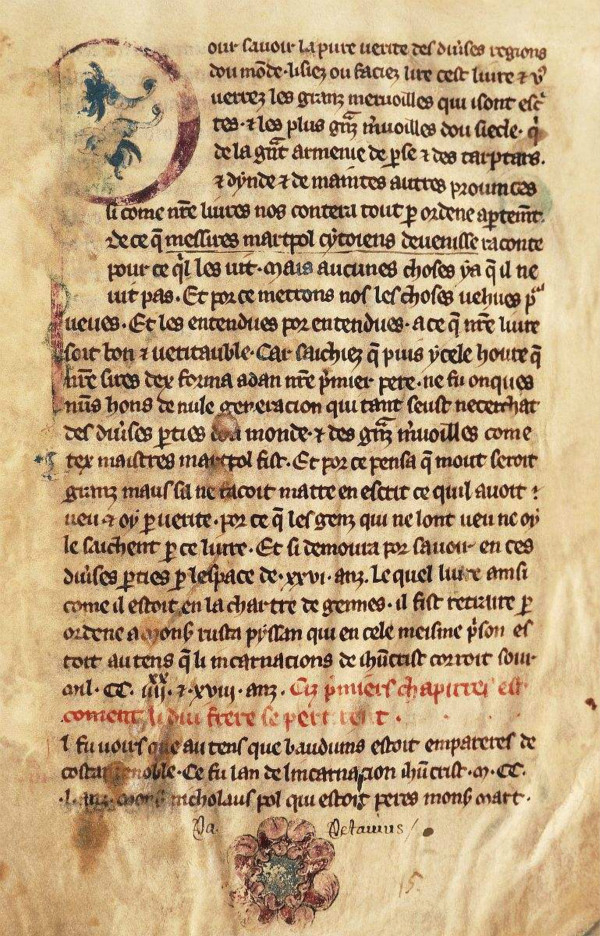 our sauoir la pure uerite des diuẽses regions
dou mõde. lisiez ou faciez lire cest liure ⁊ v9
uerrez les granz meruoilles qui isont esc̾
tes. ⁊ les plus gñz m̾uoilles dou siecle. q̾
de la gñt armenie de ꝑse ⁊ des tarptars.
⁊ dynde ⁊ de maintes autres prouinces
si come nr̃e liures nos contera tout ꝑ ordene aꝑtemt̃.
de ce q̃ messires marcpol cytoiens deuenisse raconte
pour ce q̾l les uit. mais aucunes choses ya q̃ il ne
uit pas. Et por ce metrons nos les choses uehues pʳ
ueues. Et les entendues por entendues. a ce q̃ nr̃e liure
soit bon ⁊ ueritauble. Car saichiez q̃ puis ycele houre q̃
nr̃e sires dex forma adan nr̃e p̾mier pere. ne fu onques
nuns hons de nule generacion qui tant seust ne cerchat
des diũses ꝑties dou monde. ⁊ des gñz m̾uoilles come
tex maistres marcpol fist. Et por ce pensa q̃ mout seroit
granz maus sil ne facoit mattre en escrit ce quil auoit
ueu. ⁊ oy ꝑ uerite. por ce q̃ les genz qui ne lont ueu ne oy
le saichent ꝑ ce liure. Et si demoura por sauoir en ces
diũses ꝑties ꝑ lespace de. xxvi. anz. Le quel liure ainsi
come il estoit en la chartre de gennes. il fist retraire ꝑ
ordene a monß rusta pyssan qui en cele meisme p̾son es
toit au tens q̃ li incarnacions de ihũcrist corroit sour
.mil. CC. iiij.ˣˣ ⁊ xviii. anz. Ciz p̾miers chapitres est
coment li dui frere se partirent.
l fu uoirs que au tens que bauduins estoit empareres de
costantenoble. Ce fu lan de lincarnacion ihũcrist. M. CC.
.l. anz. monß nicholaus pol qui estoit peres monß marc.
Pa. Petauius
15.